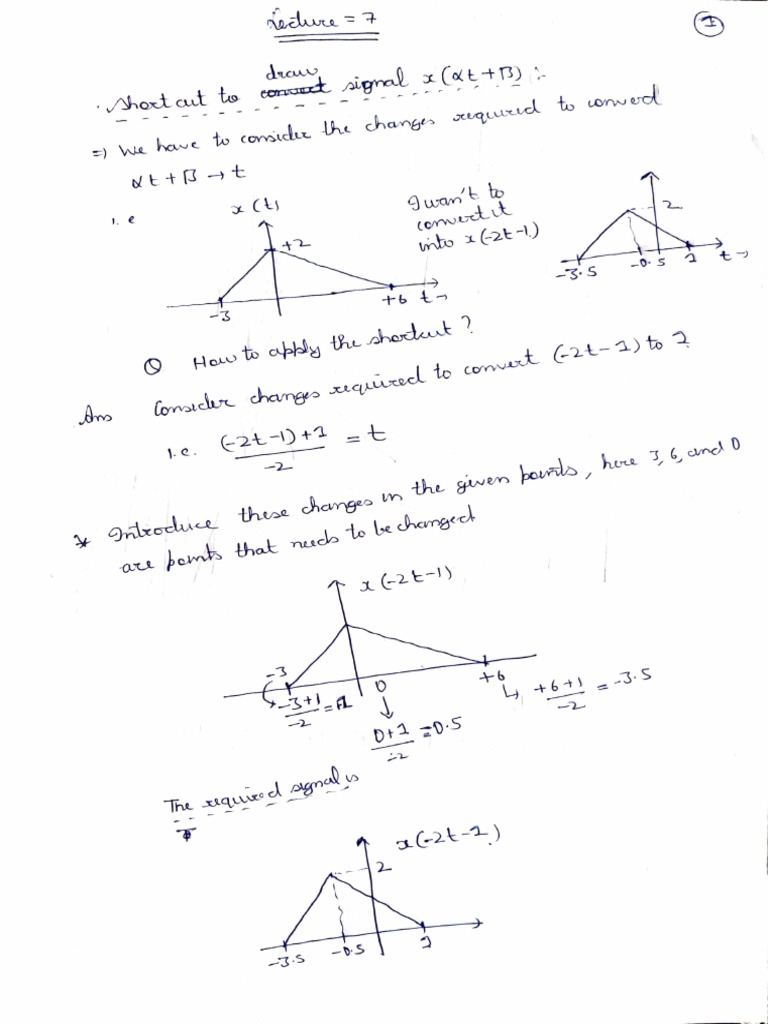 Lecture = 7
1
. Shortcut to draw signal x(αt+β) :-
=) We have to consider the changes required to convert
αt+β → t
i.e
x(t)
I wan't to
convert it
into x(-2t-1)
+2
-3
+6 t→
2
-3.5
-0.5
1
t→
Q How to apply the shortcut?
Ans Consider changes required to convert (-2t-1) to 1
i.e. (-2t-1)+1 / -2 = t
* Introduce these changes in the given points, here 3, 6, and 0
are points that needs to be changed
x(-2t-1)
-3
0
+6
-3+1 / -2 = 1
0+1 / -2 = 0.5
↳ +6+1 / -2 = -3.5
The required signal is
x(-2t-1)
2
-3.5
-0.5
1